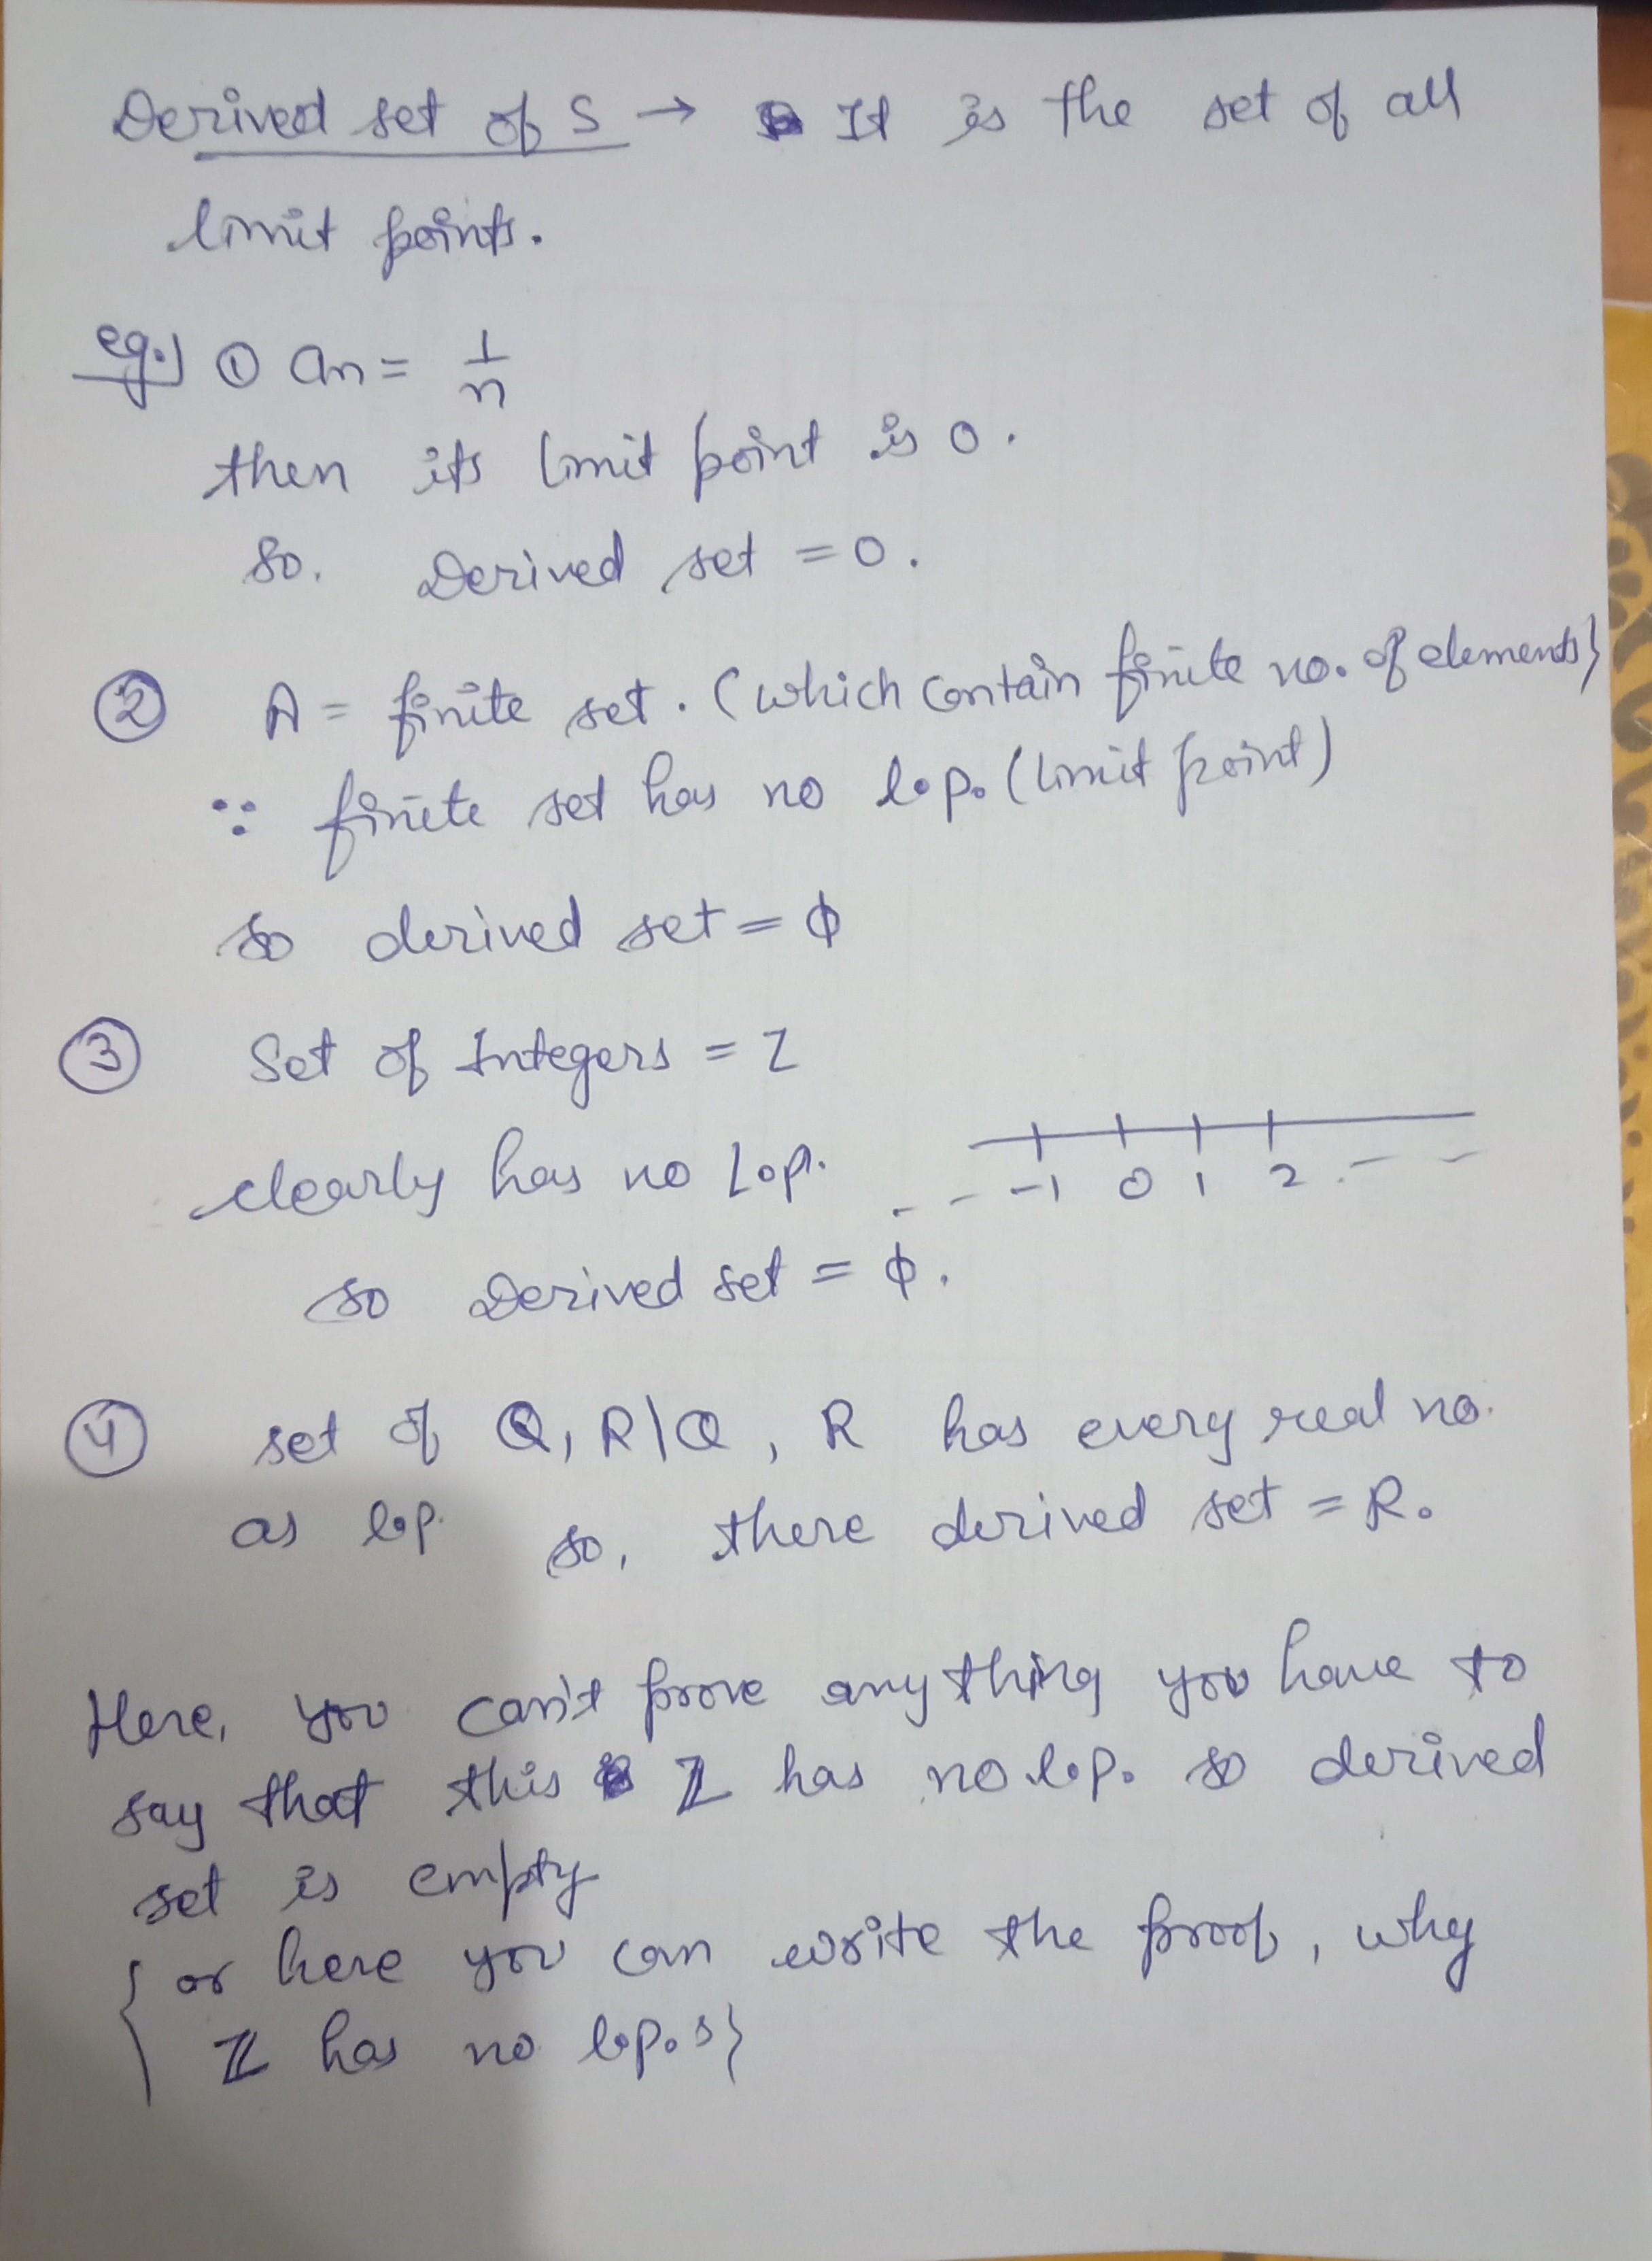 Derived set of S → It is the set of all
limit points.
eg.) ① an = 1/n
then its limit point is 0.
So. Derived set = 0.
② A = finite set. (which contain finite no. of elements}
∵ finite set has no l.p. (limit point)
so derived set = ϕ
③ Set of Integers = Z
clearly has no l.p.
-- -1 0 1 2 .- -
so Derived set = ϕ.
④ set of Q, R\Q, R has every real no.
as l.p. so, there derived set = R.
Here, you can't prove anything you have to
say that this ℤ has no l.p. so derived
set is empty
{or here you can write the proof, why
ℤ has no l.p.s}